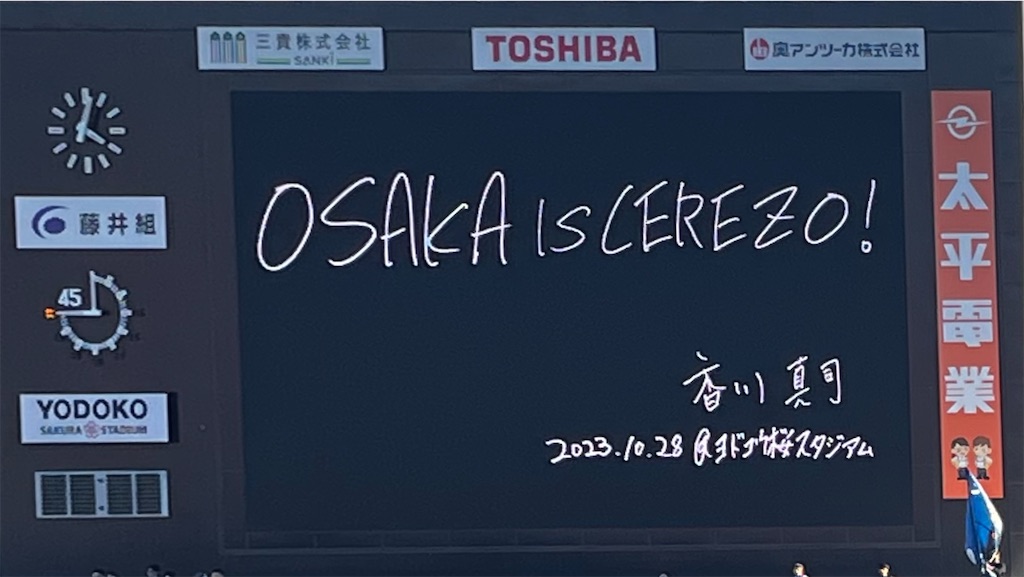 三貴株式会社
SANKI
TOSHIBA
奥アンツーカ株式会社
藤井組
45
YODOKO
SAKURA STADIUM
OSAKA IS CEREZO!
香川 真司
2023.10.28 @ヨドコウ桜スタジアム
太平電業